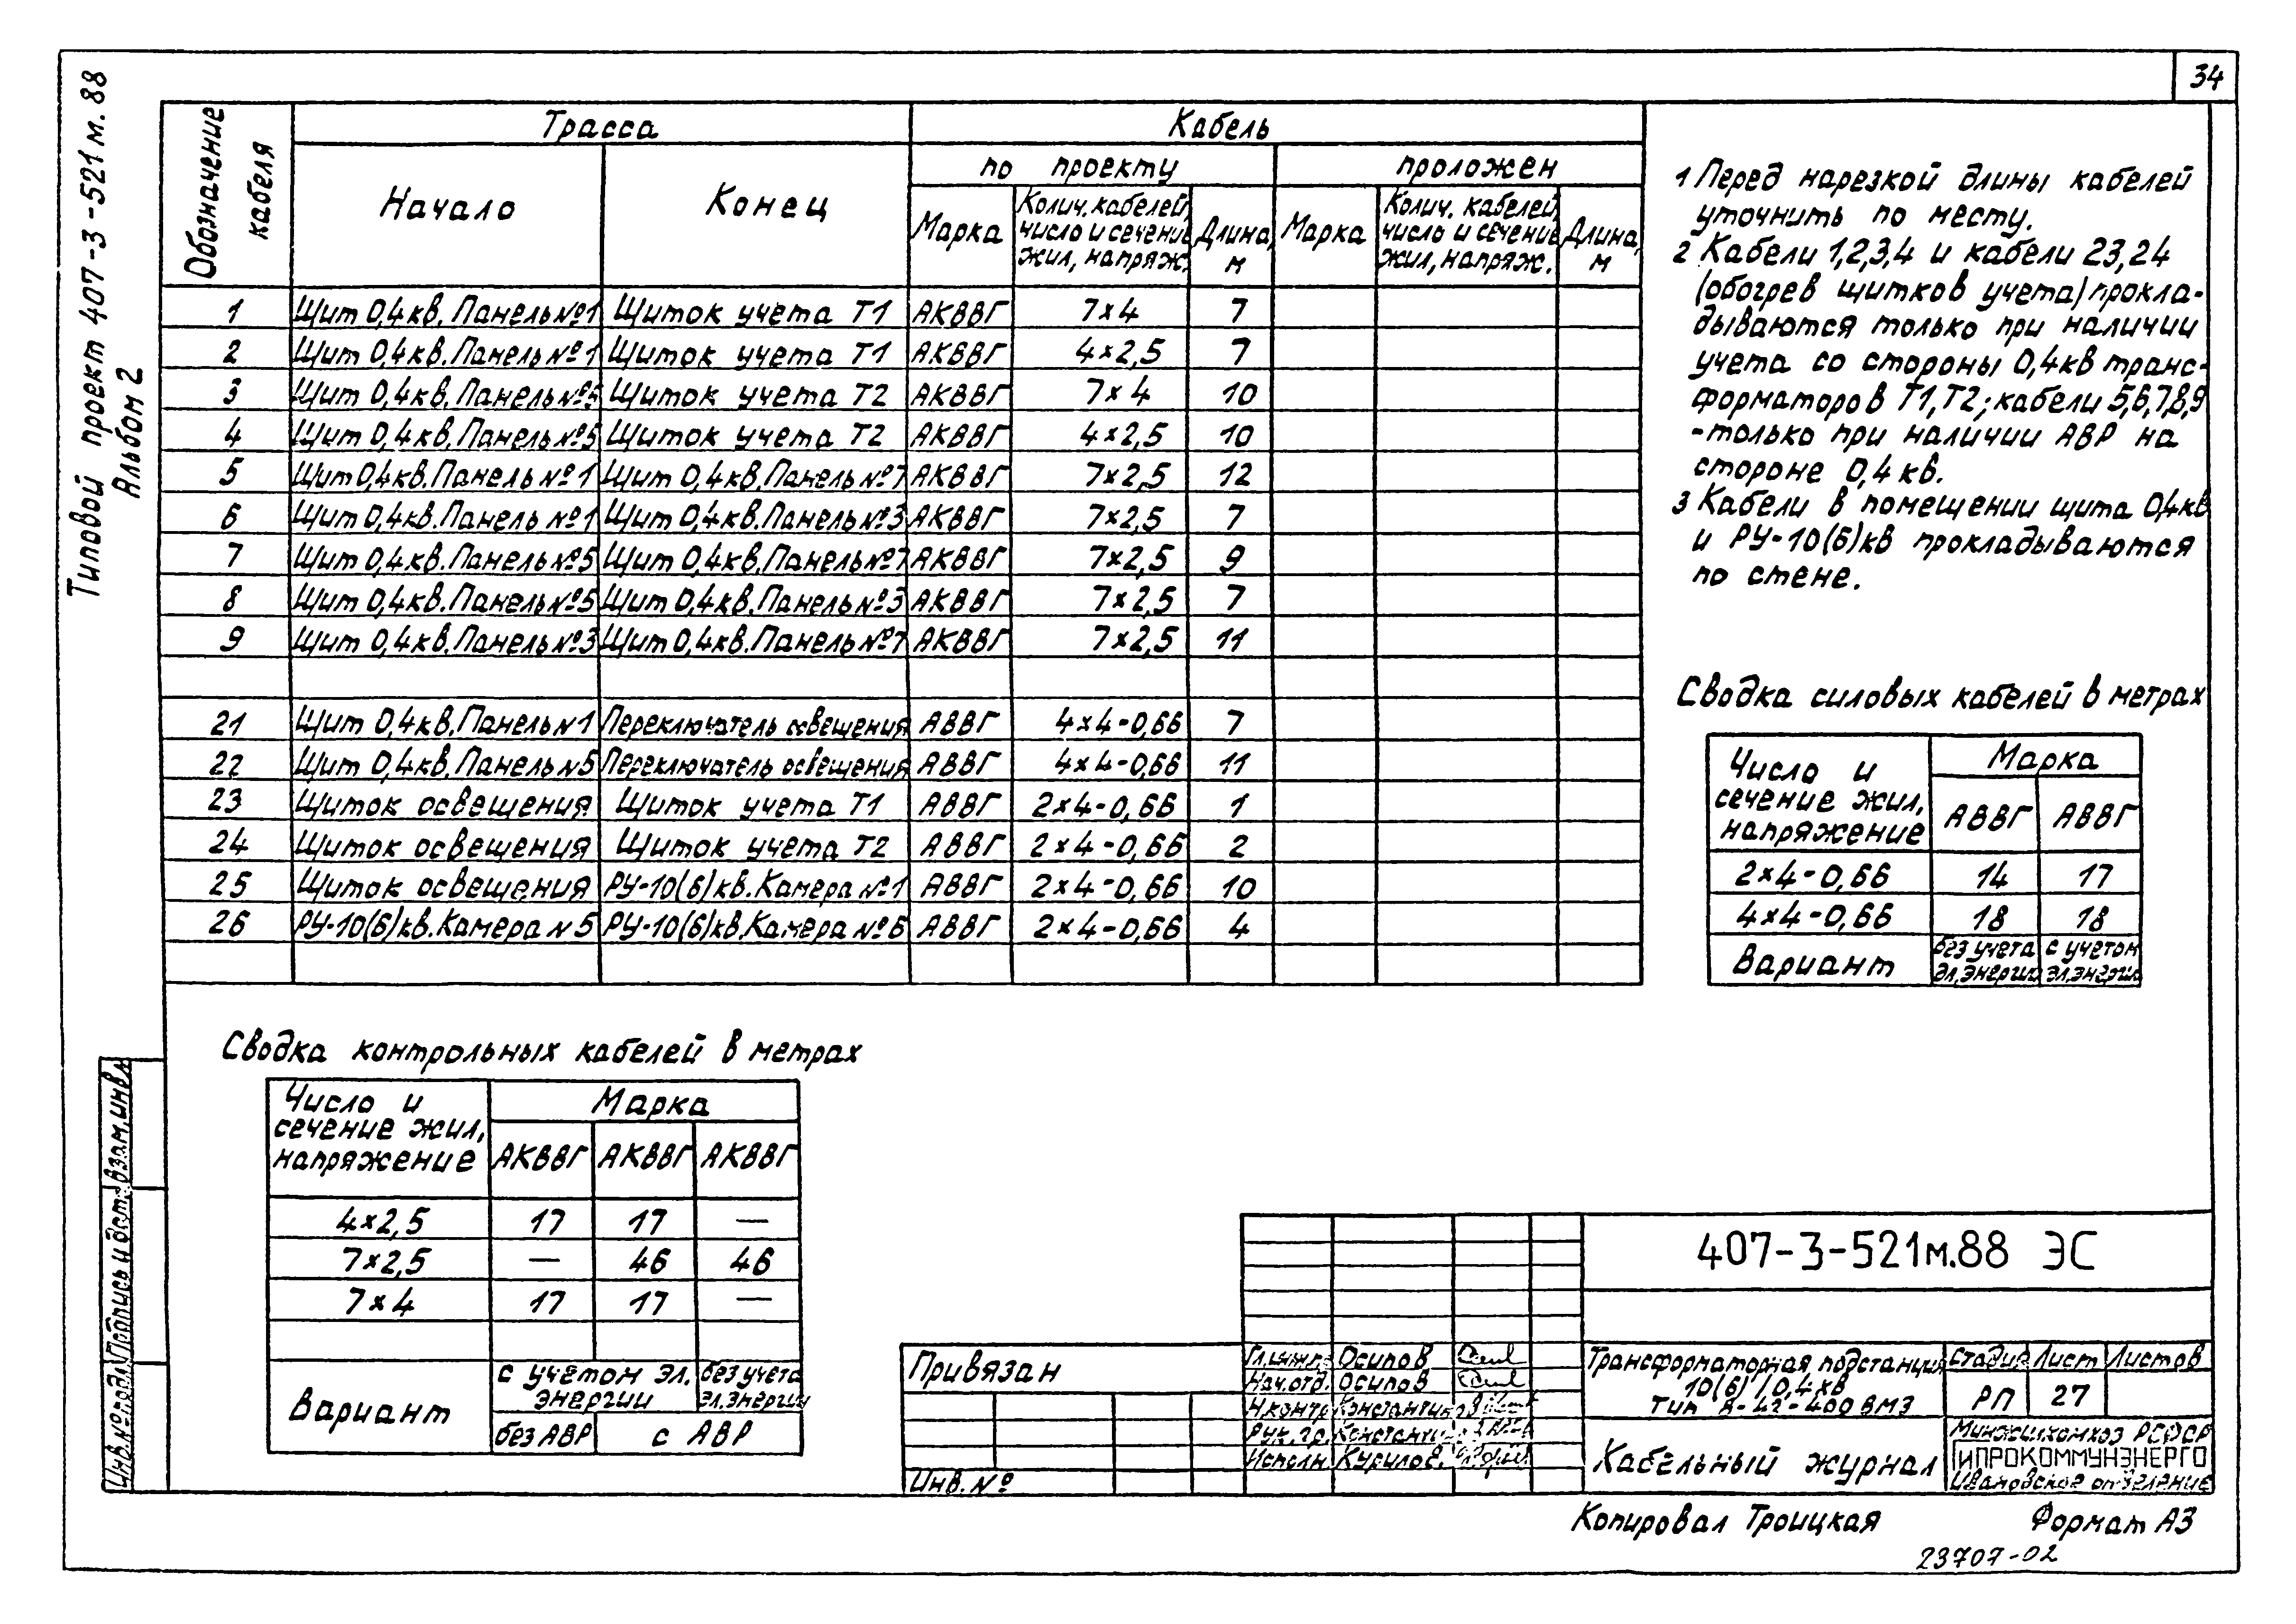 34
Типовой проект 407-3-521м.88
Альбом 2
Обозначение кабеля
Трасса
Кабель
по проекту
проложен
Начало
Конец
Марка
Колич. кабелей, число и сечение жил, напряж.
Длина, м
Марка
Колич. кабелей, число и сечение жил, напряж.
Длина, м
1 Щит 0,4кв. Панель №1 Щиток учета Т1 АКВВГ 7×4 7
2 Щит 0,4кв. Панель №1 Щиток учета Т1 АКВВГ 4×2,5 7
3 Щит 0,4кв. Панель №5 Щиток учета Т2 АКВВГ 7×4 10
4 Щит 0,4кв. Панель №5 Щиток учета Т2 АКВВГ 4×2,5 10
5 Щит 0,4кв. Панель №1 Щит 0,4кв. Панель №7 АКВВГ 7×2,5 12
6 Щит 0,4кв. Панель №1 Щит 0,4кв. Панель №3 АКВВГ 7×2,5 7
7 Щит 0,4кв. Панель №5 Щит 0,4кв. Панель №7 АКВВГ 7×2,5 9
8 Щит 0,4кв. Панель №5 Щит 0,4кв. Панель №3 АКВВГ 7×2,5 7
9 Щит 0,4кв. Панель №3 Щит 0,4кв. Панель №7 АКВВГ 7×2,5 11
21 Щит 0,4кв. Панель N1 Переключатель освещения АВВГ 4×4-0,66 7
22 Щит 0,4кв. Панель N5 Переключатель освещения АВВГ 4×4-0,66 11
23 Щиток освещения Щиток учета Т1 АВВГ 2×4-0,66 1
24 Щиток освещения Щиток учета Т2 АВВГ 2×4-0,66 2
25 Щиток освещения РУ-10(6)кв. Камера №1 АВВГ 2×4-0,66 10
26 РУ-10(6)кв. Камера N5 РУ-10(6)кв. Камера №6 АВВГ 2×4-0,66 4
1 Перед нарезкой длины кабелей
уточнить по месту.
2 Кабели 1,2,3,4 и кабели 23,24
(обогрев щитков учета) прокла-
дываются только при наличии
учета со стороны 0,4кв транс-
форматоров Т1,Т2; кабели 5,6,7,8,9
-только при наличии АВР на
стороне 0,4кв.
3 Кабели в помещении щита 0,4кв
и РУ-10(6)кв прокладываются
по стене.
Сводка силовых кабелей в метрах
Число и сечение жил, напряжение
Марка
АВВГ АВВГ
2×4-0,66 14 17
4×4-0,66 18 18
Вариант без учета эл.энергии с учетом эл.энергии
Сводка контрольных кабелей в метрах
Число и сечение жил, напряжение
Марка
АКВВГ АКВВГ АКВВГ
4×2,5 17 17 —
7×2,5 — 46 46
7×4 17 17 —
Вариант
с учетом эл. энергии
без учета эл.энергии
без АВР с АВР
Взам.инв.
Подпись и дата
Инв.№подл.
Привязан
Инв.№
Гл.инж.
Осипов
Нач.отд.
Осипов
Н.контр
Рук.гр.
Исполн.
Курилов.
407-3-521м.88 ЭС
Трансформаторная подстанция
10(6)/0,4кв
тип В-42-400ВМЗ
Стадия Лист Листов
РП 27
Кабельный журнал
Минжилкомхоз РСФСР
ГИПРОКОММУНЭНЕРГО
Ивановское отделение
Копировал Троицкая
Формат А3
23707-02